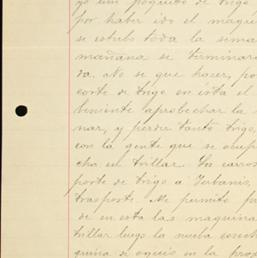 yo un poquito de trigo
por haber ido el maqui
se estubo toda la sema
mañana se terminar
da. No se que hacer, po
corte de trigo en esta el
beniente aprobechar la
nar, y perder tanto trigo,
con la gente que se ocup
cha en trillar. Los carros
porte de trigo a
trasporte. Me permito
de en esta las maquina
trillar luego la nueba cosech
quina de aquis en la prox